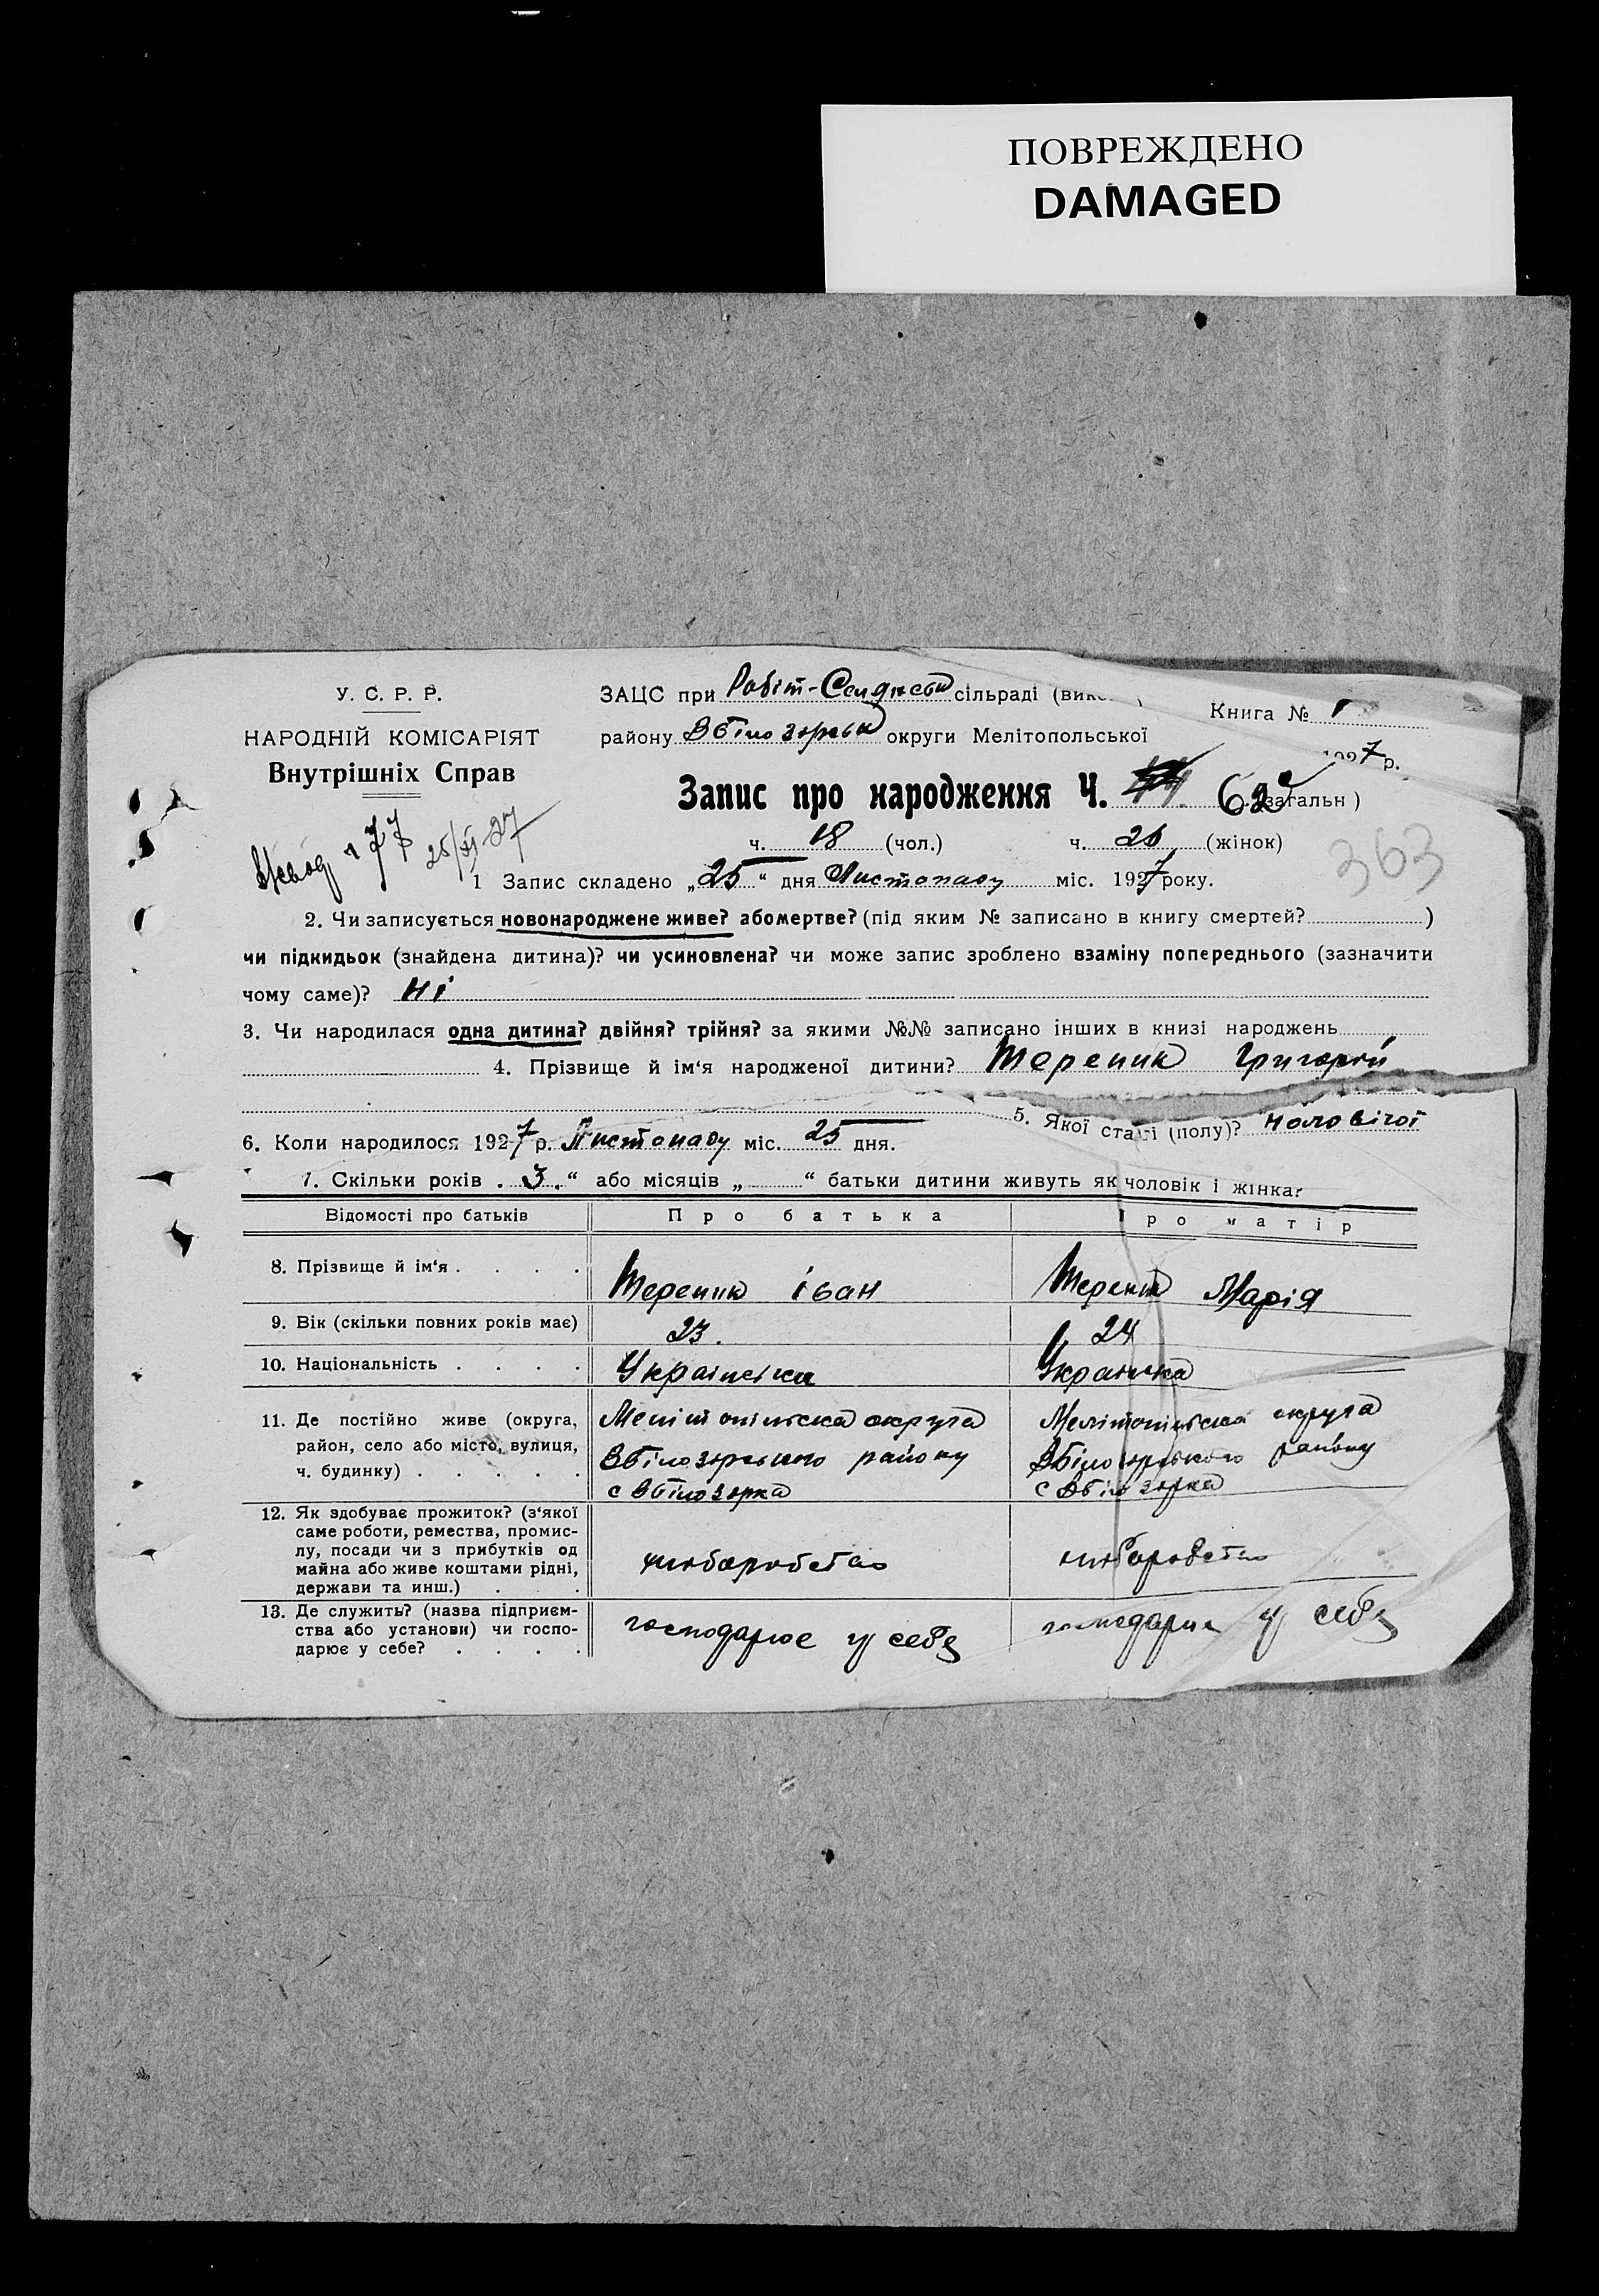 ПОВРЕЖДЕНО
DAMAGED
У. С. Р. Р.
НАРОДНІЙ КОМІСАРІЯТ
Внутрішніх Справ
ЗАЦС при Робіт-Селянськ сільраді (вик
району ВБілозірськ округи Мелітопольської
Книга № 1
1927 р.
Запис про народження Ч. 62 загальн)
ч. 18 (чол.) ч. 26 (жінок)
77 25/XI-27
363
1 Запис складено „25“ дня Листопаду міс. 1927 року.
2. Чи записується новонароджене живе? або мертве? (під яким № записано в книгу смертей? )
чи підкидьок (знайдена дитина)? чи усиновлена? чи може запис зроблено взаміну попереднього (зазначити
чому саме)? Ні
3. Чи народилася одна дитина? двійня? трійня? за якими №№ записано інших в книзі народжень
4. Прізвище й ім‘я народженої дитини? Терепик Григорій
5. Якої статі (полу)? чоловічої
6. Коли народилося 1927 р. Листопаду міс. 25 дня.
7. Скільки років „3“ або місяців „ “ батьки дитини живуть як чоловік і жінка?
Відомості про батьків Про батька Про матір
8. Прізвище й ім‘я . . . .
Терепик Іван
Терепик Марія
9. Вік (скільки повних років має)
23.
24
10. Національність . . . .
Українська
Українка
11. Де постійно живе (округа,
район, село або місто, вулиця,
ч. будинку) . . . . .
Мелітопільска округа
ВБілозірського району
с ВБілозірка
Мелітопільска округа
ВБілозірського району
с ВБілозірка
12. Як здобуває прожиток? (з‘якої
саме роботи, ремества, промис-
лу, посади чи з прибутків од
майна або живе коштами рідні,
держави та инш.) . . .
хліборобство
хліборобство
13. Де служить? (назва підприєм-
ства або установи) чи госпо-
дарює у себе? . . . .
господарює у себе
господарює у себе